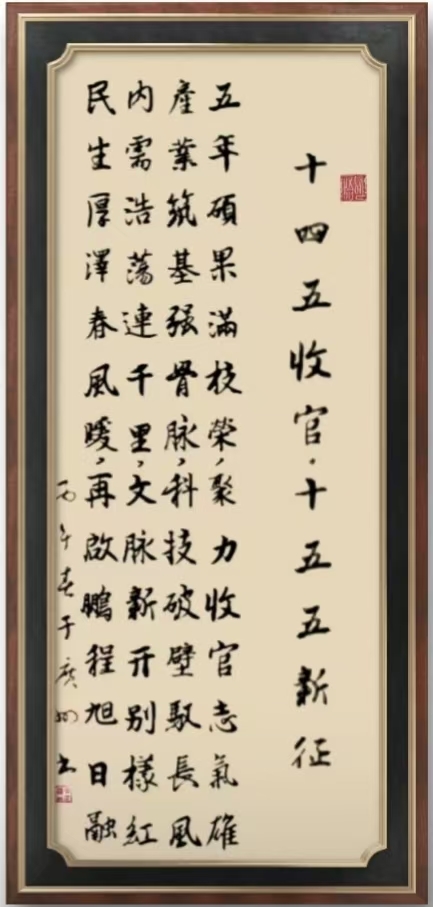 十四五收官·十五五新征
五年碩果滿枝榮，聚力收官志氣雄
產業筑基强骨脉，科技破壁馭長風
内需浩蕩連千里，文脉新开别樣紅
民生厚澤春風暖，再啟鵬程旭日融
丙午春于廣州书